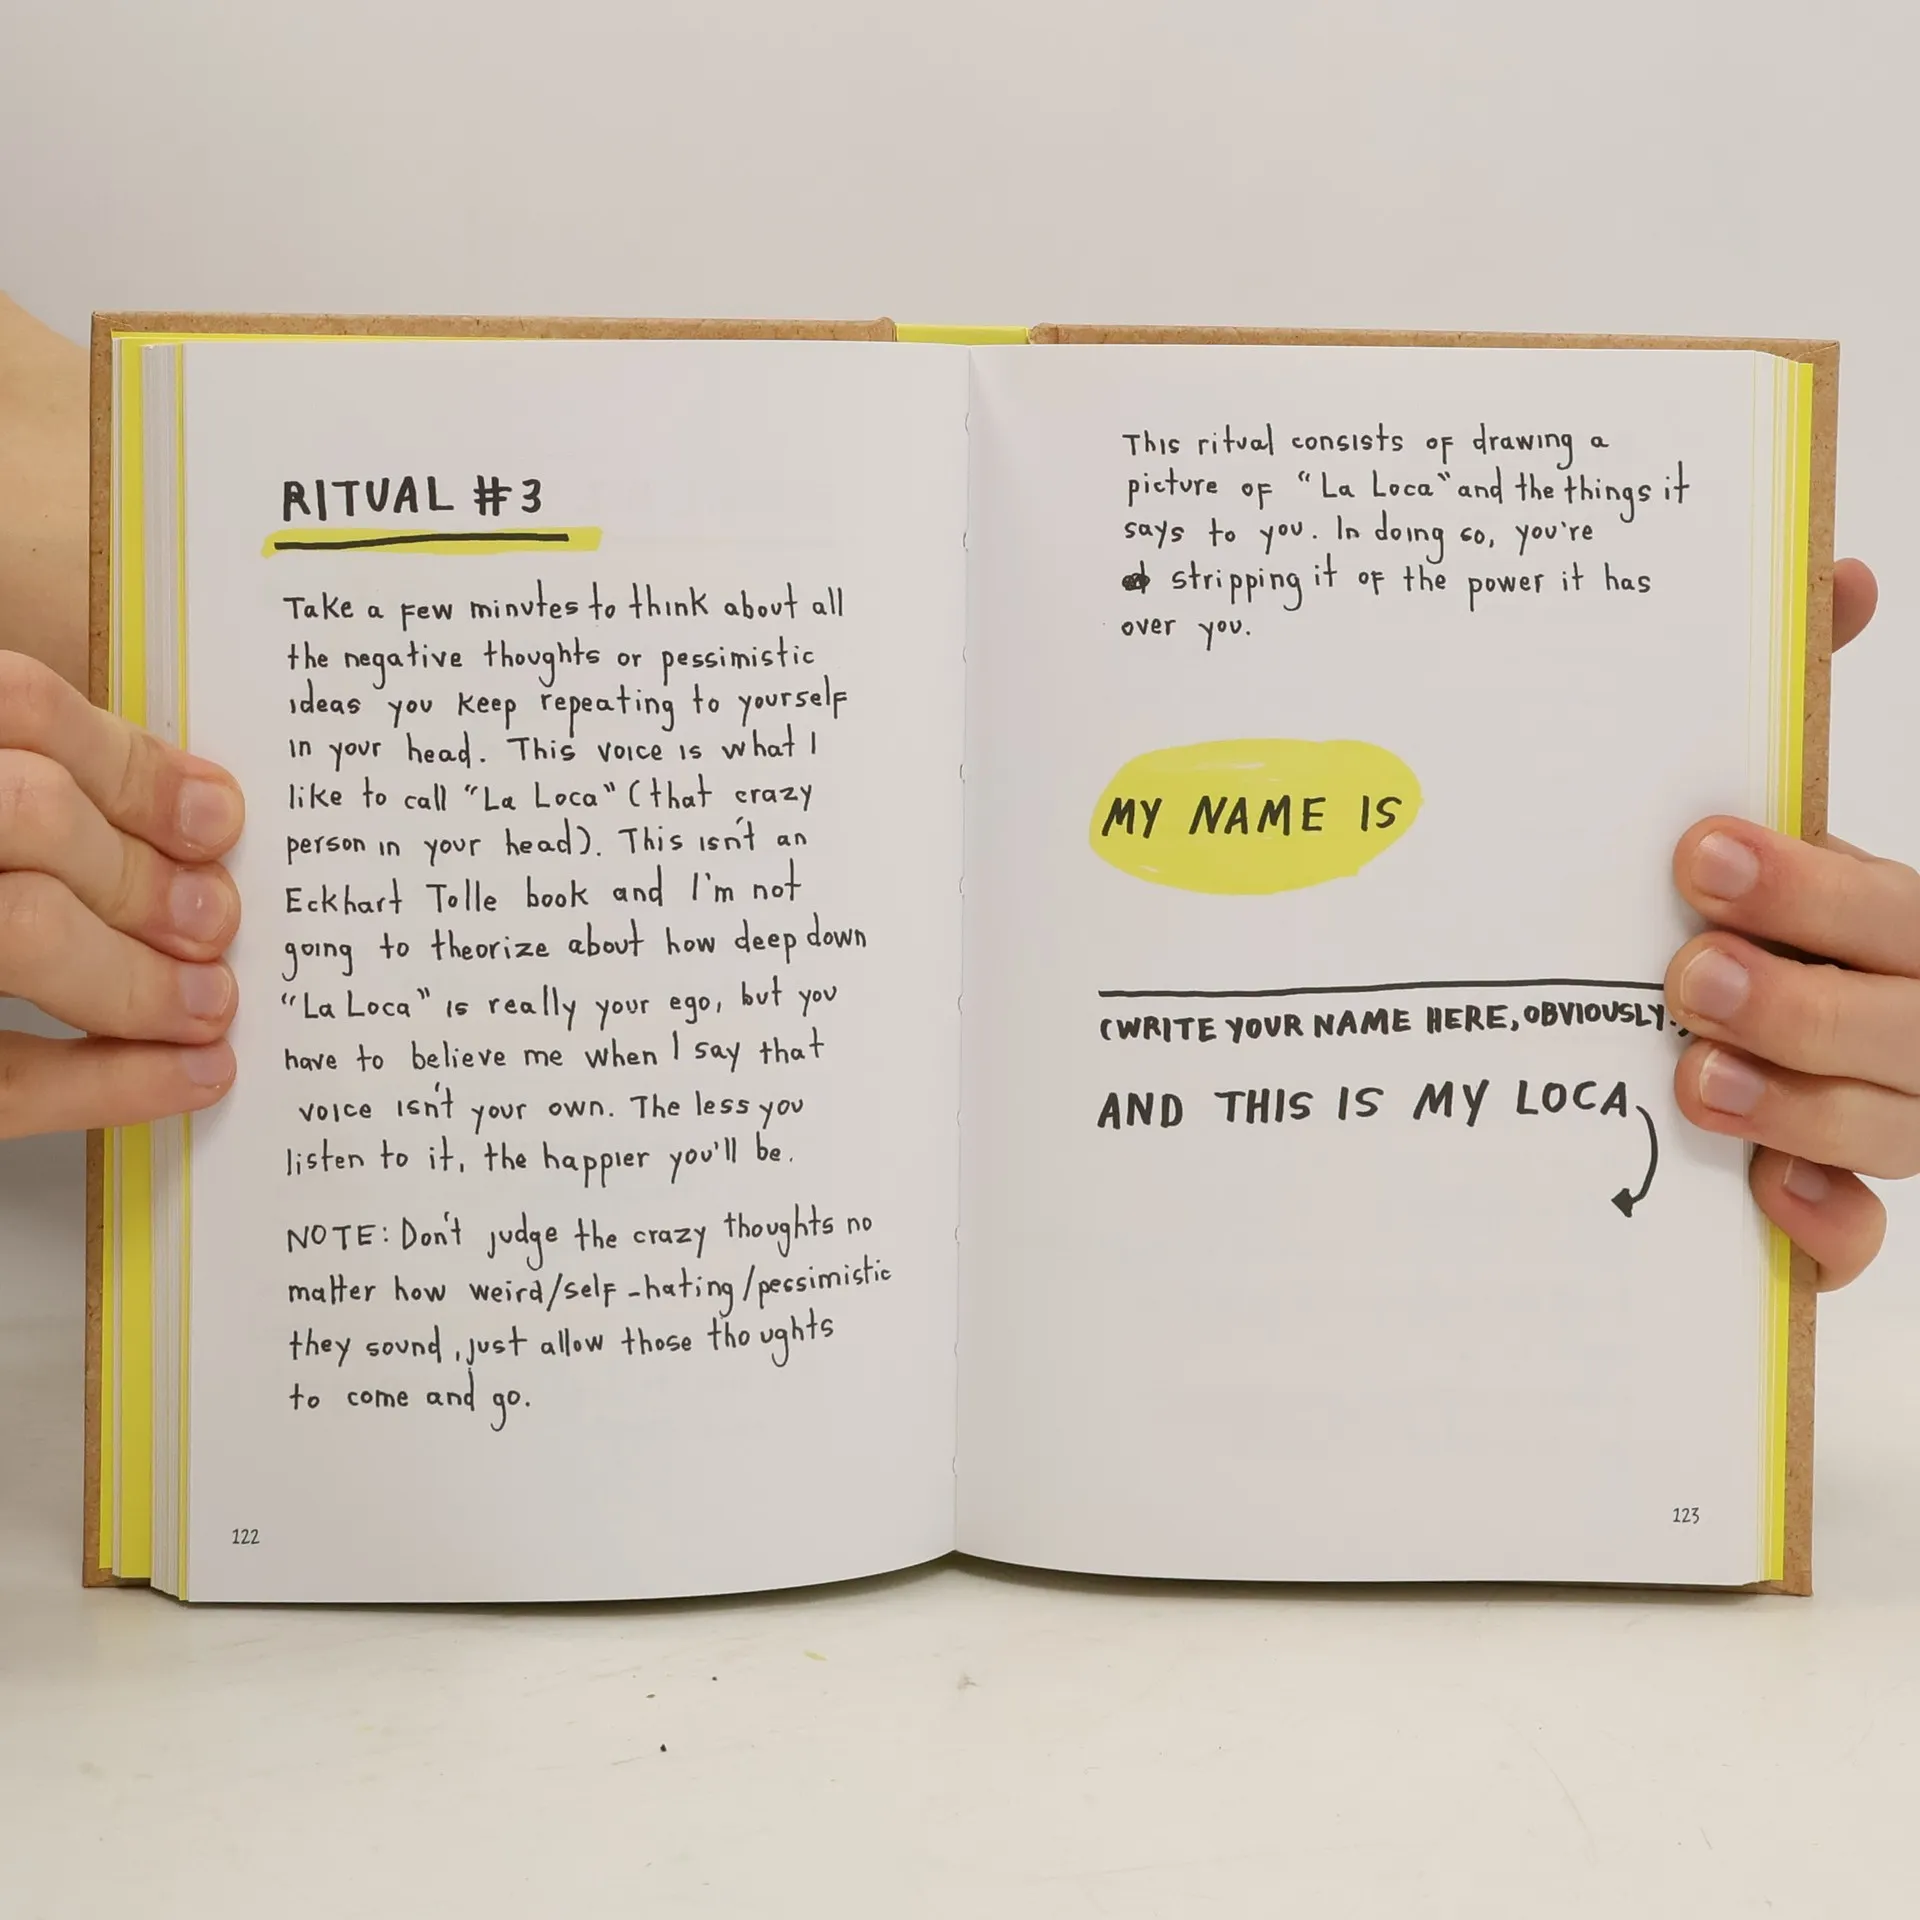 RITUAL #3
Take a few minutes to think about all
the negative thoughts or pessimistic
ideas you keep repeating to yourself
in your head. This voice is what I
like to call “La Loca” (that crazy
person in your head). This isn't an
Eckhart Tolle book and I'm not
going to theorize about how deep down
“La Loca” is really your ego, but you
have to believe me when I say that
voice isn't your own. The less you
listen to it, the happier you'll be.
NOTE: Don't judge the crazy thoughts no
matter how weird/self-hating/pessimistic
they sound, just allow those thoughts
to come and go.
122
This ritual consists of drawing a
picture of “La Loca” and the things it
says to you. In doing so, you're
stripping it of the power it has
over you.
MY NAME IS
(WRITE YOUR NAME HERE, OBVIOUSLY.)
AND THIS IS MY LOCA
123